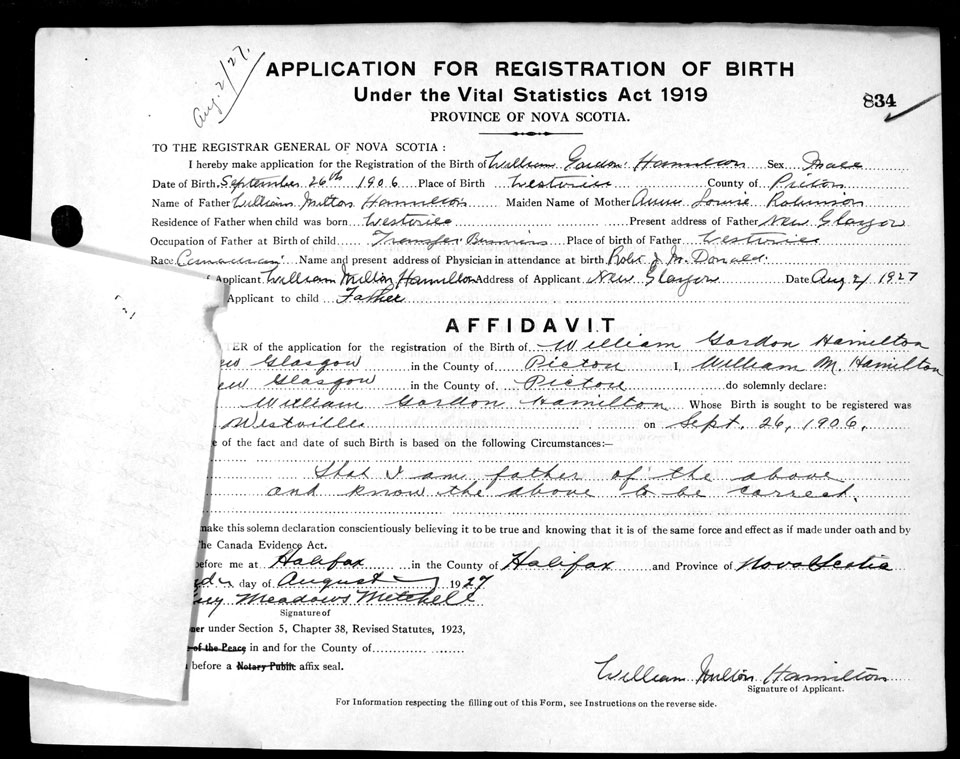 Aug. 2/27.
APPLICATION FOR REGISTRATION OF BIRTH
Under the Vital Statistics Act 1919
834
PROVINCE OF NOVA SCOTIA.
TO THE REGISTRAR GENERAL OF NOVA SCOTIA:
I hereby make application for the Registration of the Birth of William Gordon Hamilton Sex Male
Date of Birth September 26th 1906 Place of Birth Westville County of Pictou
Name of Father William Milton Hamilton Maiden Name of Mother Annie Louise Robinson
Residence of Father when child was born Westville Present address of Father New Glasgow
Occupation of Father at Birth of child Transfer Business Place of birth of Father Westville
Race Canadian Name and present address of Physician in attendance at birth Robt J McDonald
Applicant William Milton Hamilton Address of Applicant New Glasgow Date Aug 2/ 1927
Applicant to child Father
AFFIDAVIT
TER of the application for the registration of the Birth of William Gordon Hamilton
ew Glasgow in the County of Pictou I, William M. Hamilton
ew Glasgow in the County of Pictou do solemnly declare:
William Gordon Hamilton Whose Birth is sought to be registered was
Westville on Sept. 26, 1906.
e of the fact and date of such Birth is based on the following Circumstances:—
That I am father of the above
and know the above to be correct.
make this solemn declaration conscientiously believing it to be true and knowing that it is of the same force and effect as if made under oath and by
The Canada Evidence Act.
before me at Halifax in the County of Halifax and Province of Nova Scotia
day of August 1927
Meadows Mitchell
Signature of
ner under Section 5, Chapter 38, Revised Statutes, 1923,
of the Peace in and for the County of
before a Notary Public affix seal.
William Milton Hamilton
Signature of Applicant.
For Information respecting the filling out of this Form, see Instructions on the reverse side.